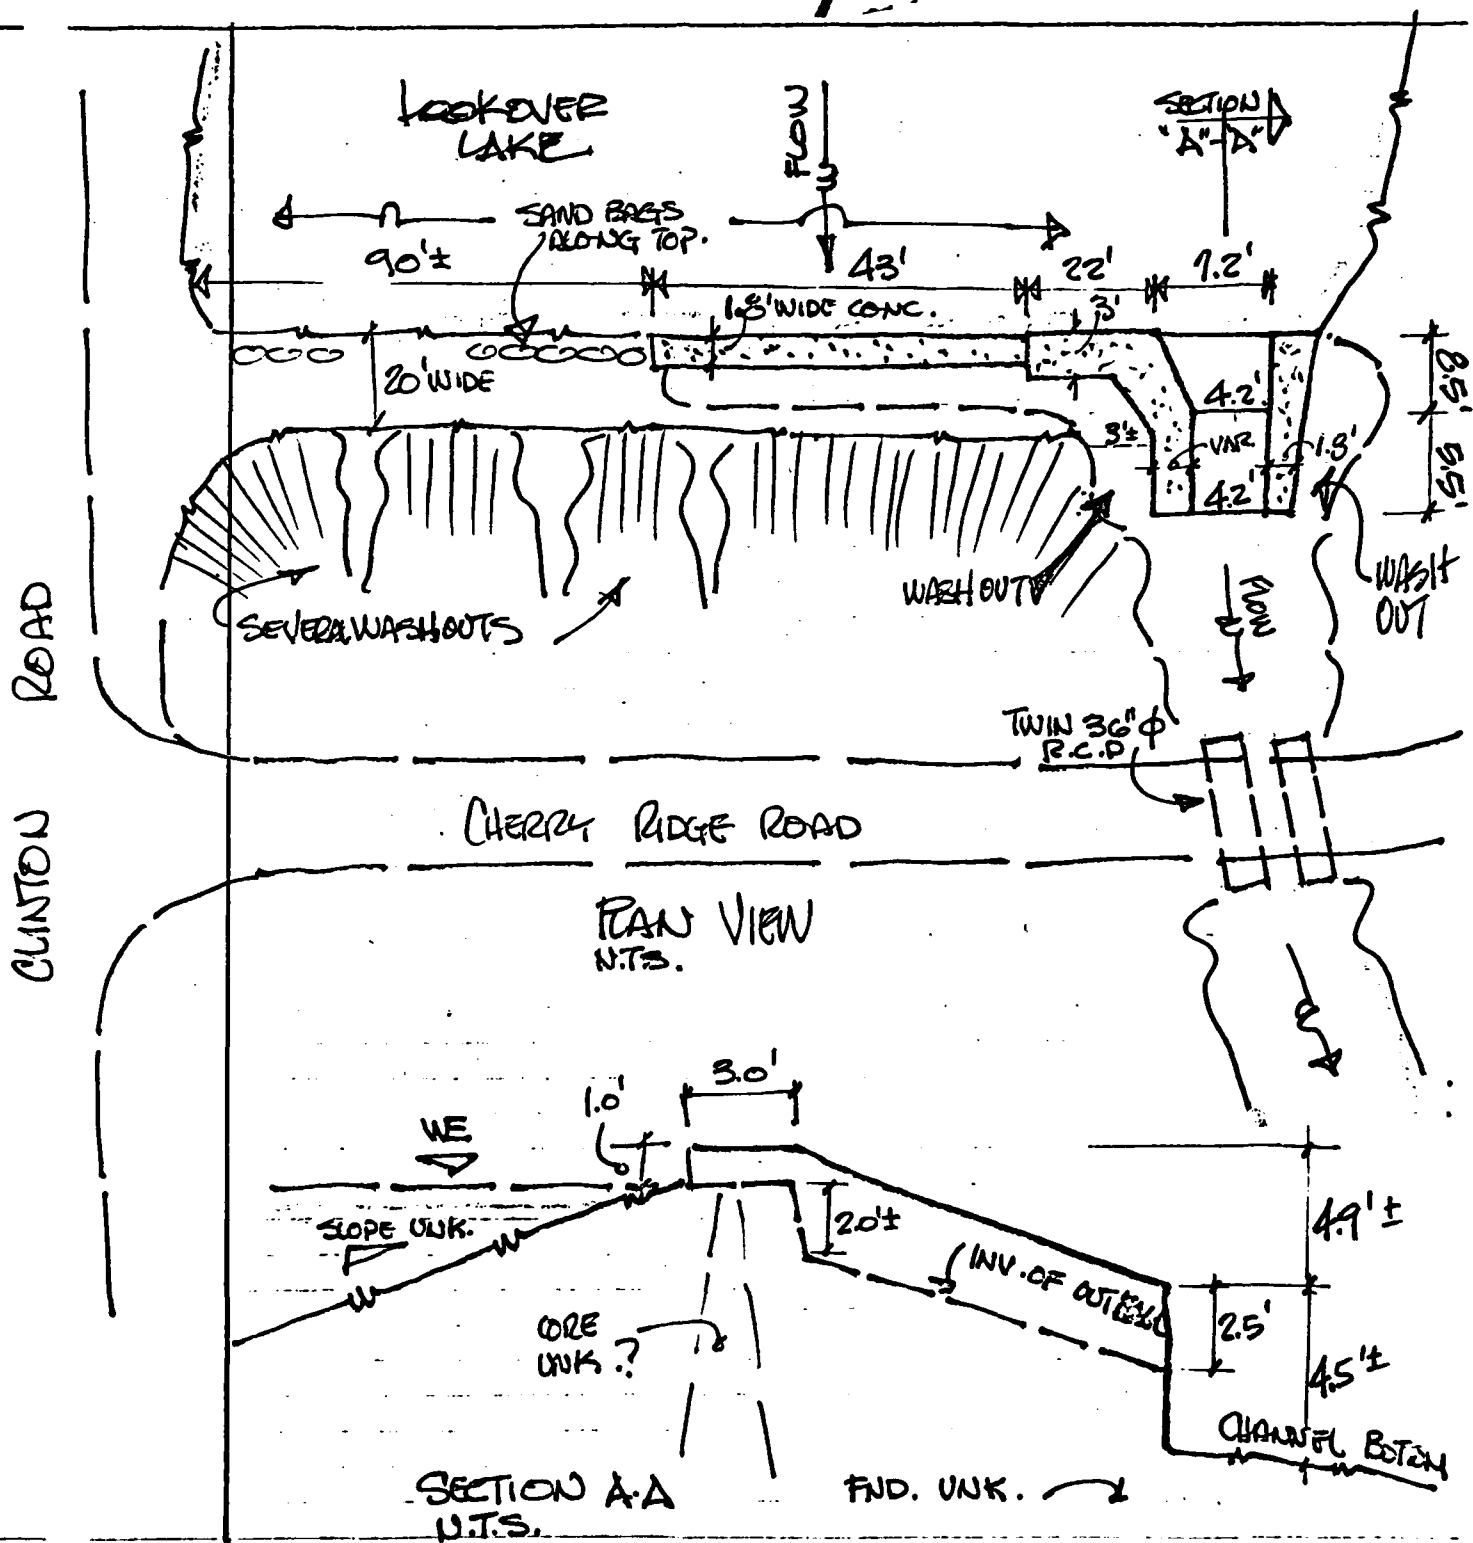 LOOKOVER
LAKE
FLOW
SECTION
"A"-"A"
SAND BAGS
ALONG TOP.
90'±
43'
22'
7.2'
1.8' WIDE CONC.
3'
20' WIDE
8.5'
4.2'
3'±
VAR.
1.8'
5.5'
4.2'
WASHOUT
WASH
OUT
FLOW
SEVERAL WASHOUTS
TWIN 36" ϕ
R.C.P
CLINTON ROAD
CHERRY RIDGE ROAD
PLAN VIEW
N.T.S.
3.0'
1.0'
WE
SLOPE UNK.
2.0'±
4.9'±
INV. OF OUTFALL
2.5'
CORE
UNK.?
4.5'±
CHANNEL BOTTOM
SECTION A-A
N.T.S.
FND. UNK.